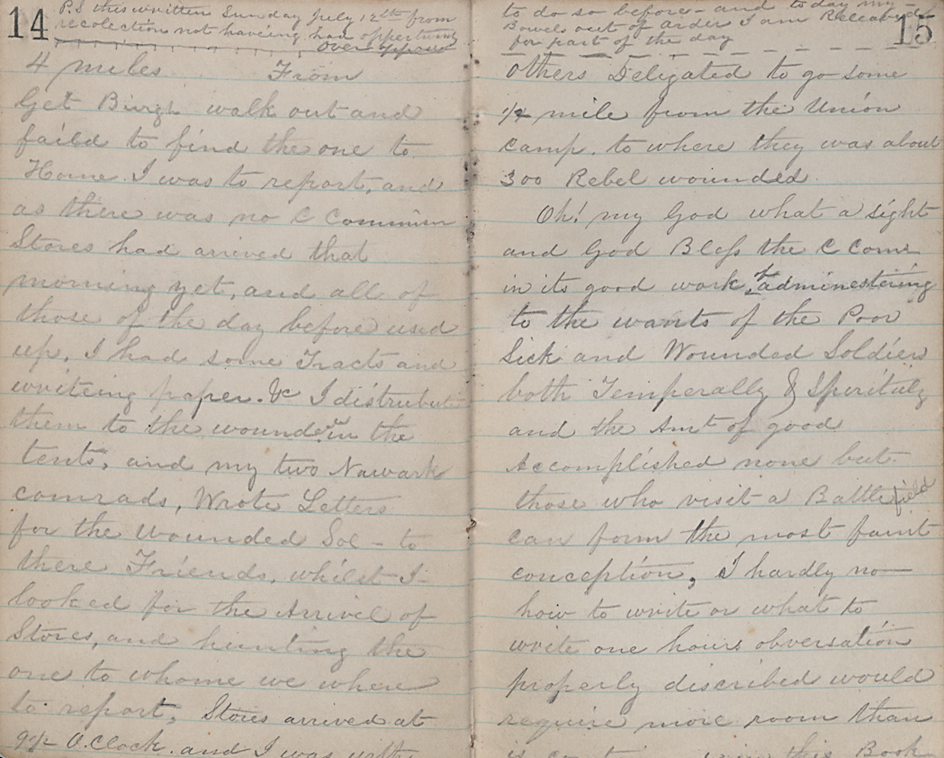 14
P.S this written Sunday July 12th from
recolection not haveing had oppertunity
over
4 miles From
Get Burgh walk out and
faild to find the one to
Home. I was to report, and
as there was no C Commision
Stores had arived that
morning yet, and all of
those of the day before used
up. I had some Tracts and
writeing paper. &c I distributed
them to the wounded in the
tents, and my two Nawark
comrads, Wrote Letters
for the wounded Sol - to
there Friends, whilst I
looked for the Arrivel of
Stores, and hunting the
one to whome we where
to report, Stores arrived at
9½ O.Clock. and I was with
15
to do so before - and to day my
Bowels out of order I am
for part of the day
others Deligated to go some
1/4 mile from the Union
camp. to where they was about
300 Rebel wounded
Oh! my God what a sight
and God Bless the C Com
in its good work, of adminestering
to the wants of the Poor
Sick and Wounded Soldiers
both Temperally & Spiritualy
and the Amt of good
Accomplished none but
those who visit a Battle field
can form the most faint
conception, I hardly no
how to write or what to
write one hours obversation
properly discribed would
require more room than
is in this Book